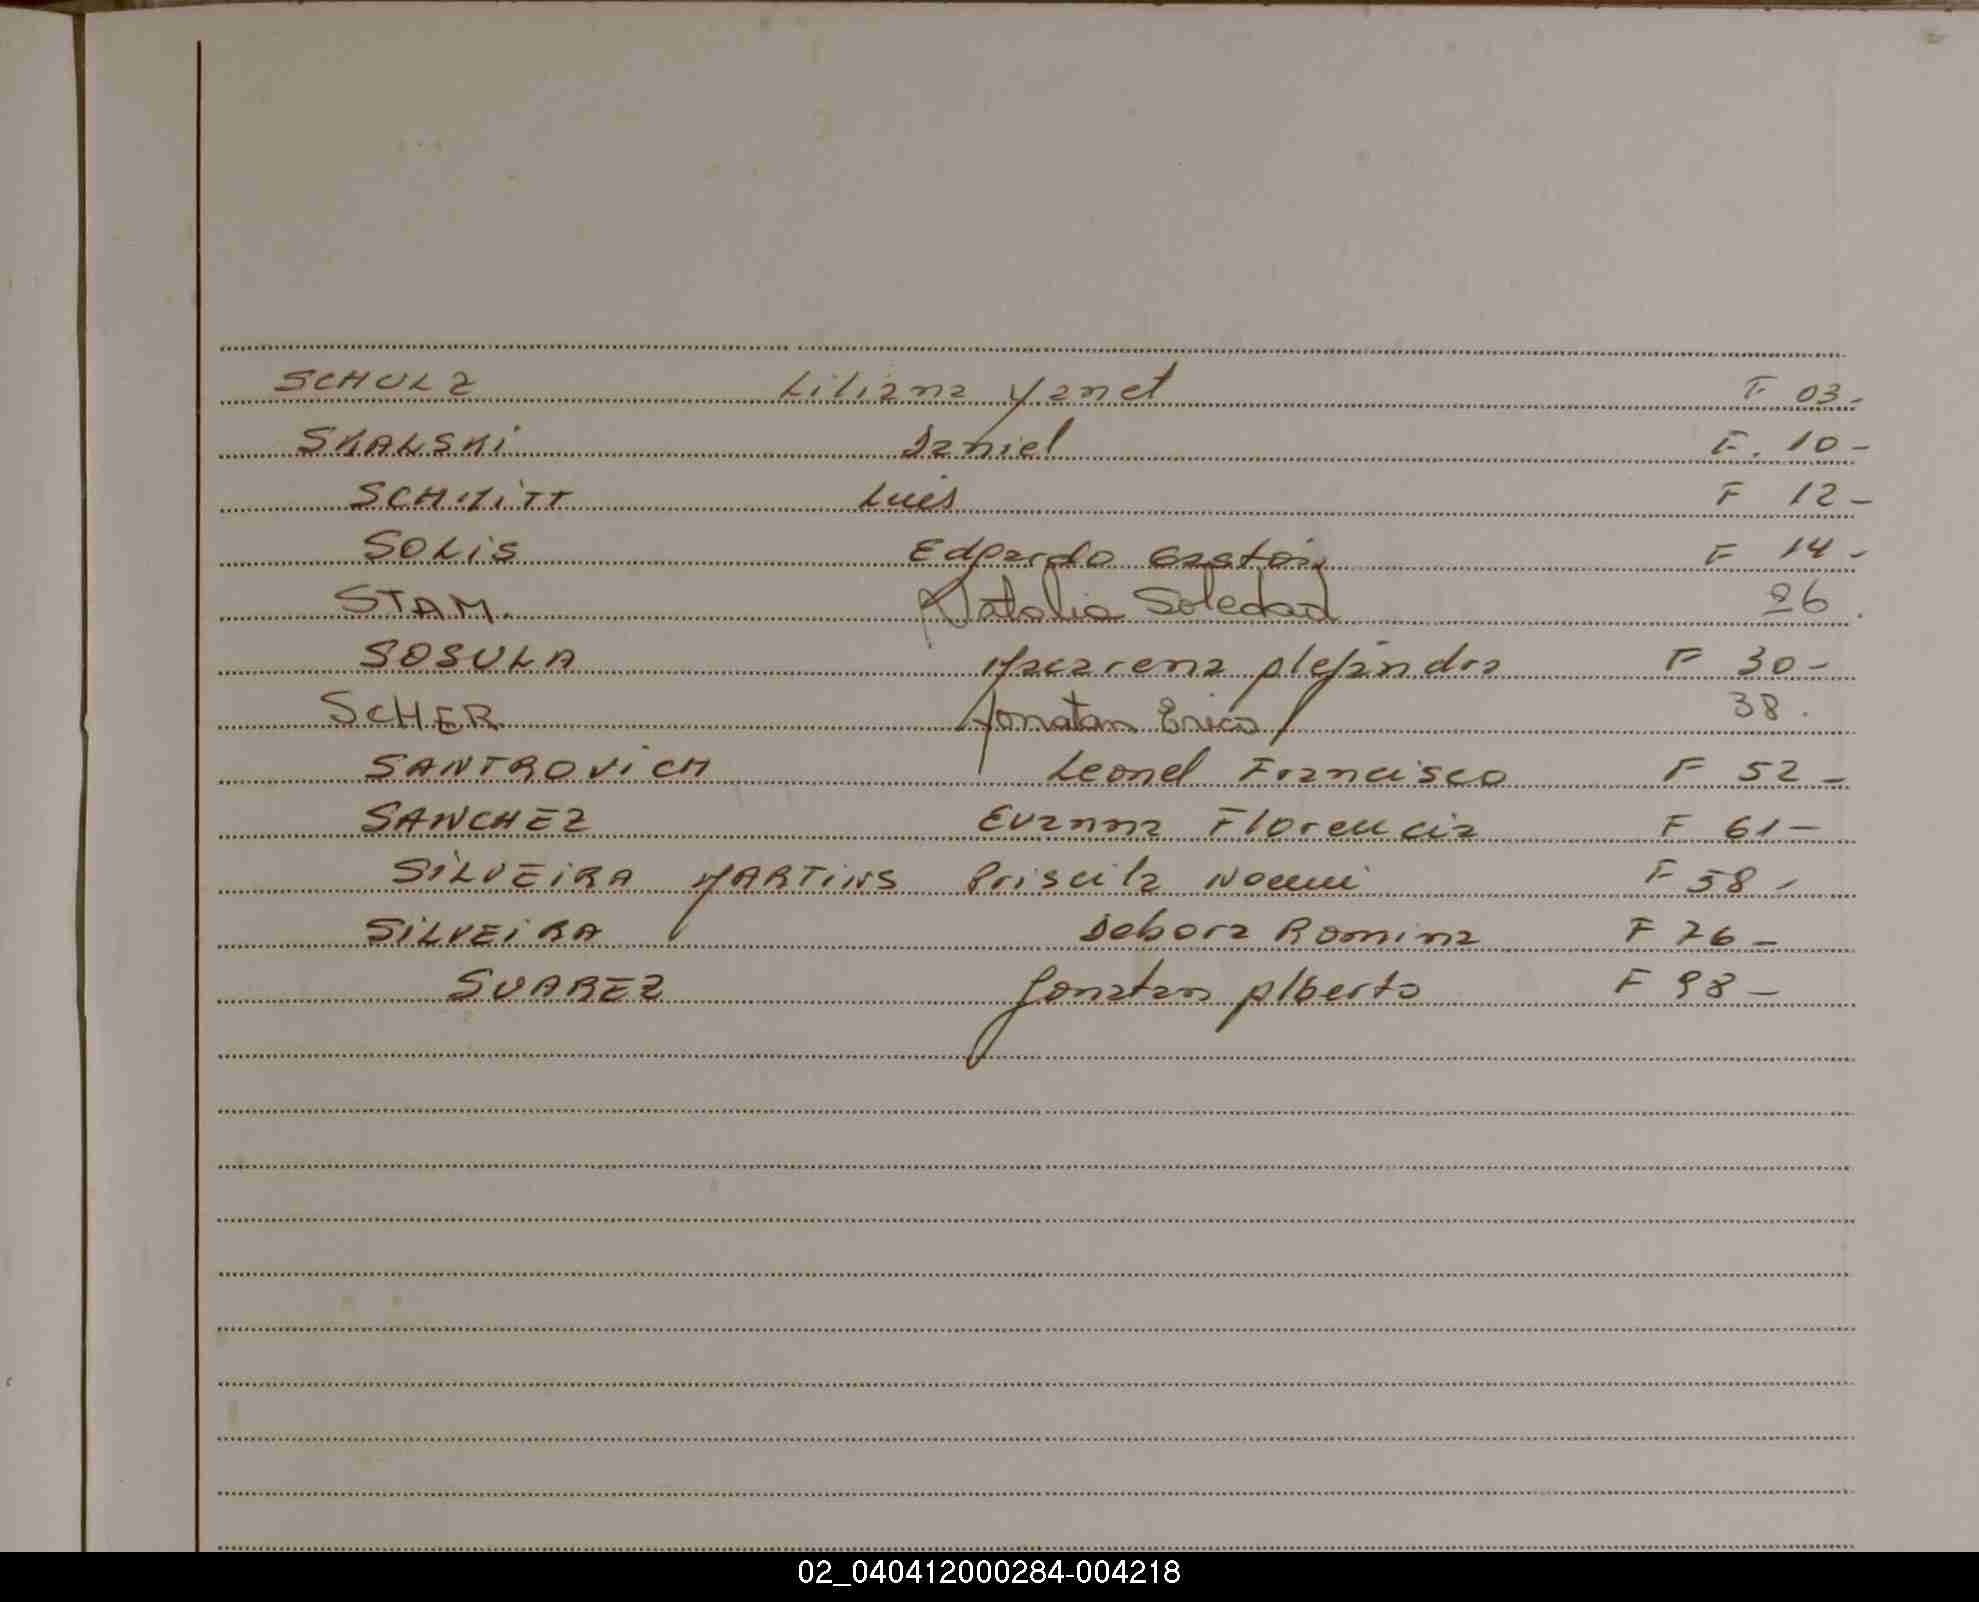 SCHULZ Liliana Yanet F 03-
SKALSKI Daniel F. 10-
SCHMITT Luis F 12-
SOLIS Edgardo Gastón F 14-
STAM. Natalia Soledad 26.
SOSULA Macarena Alejandra F 30-
SCHER Jonatan Erico 38.
SANTROVICH Leonel Francisco F 52-
SANCHEZ Evanna Florencia F 61-
SILVEIRA MARTINS Priscila Noemi F 58-
SILVEIRA Debora Romina F 76-
SUAREZ Jonatan Alberto F 98-
02_040412000284-004218